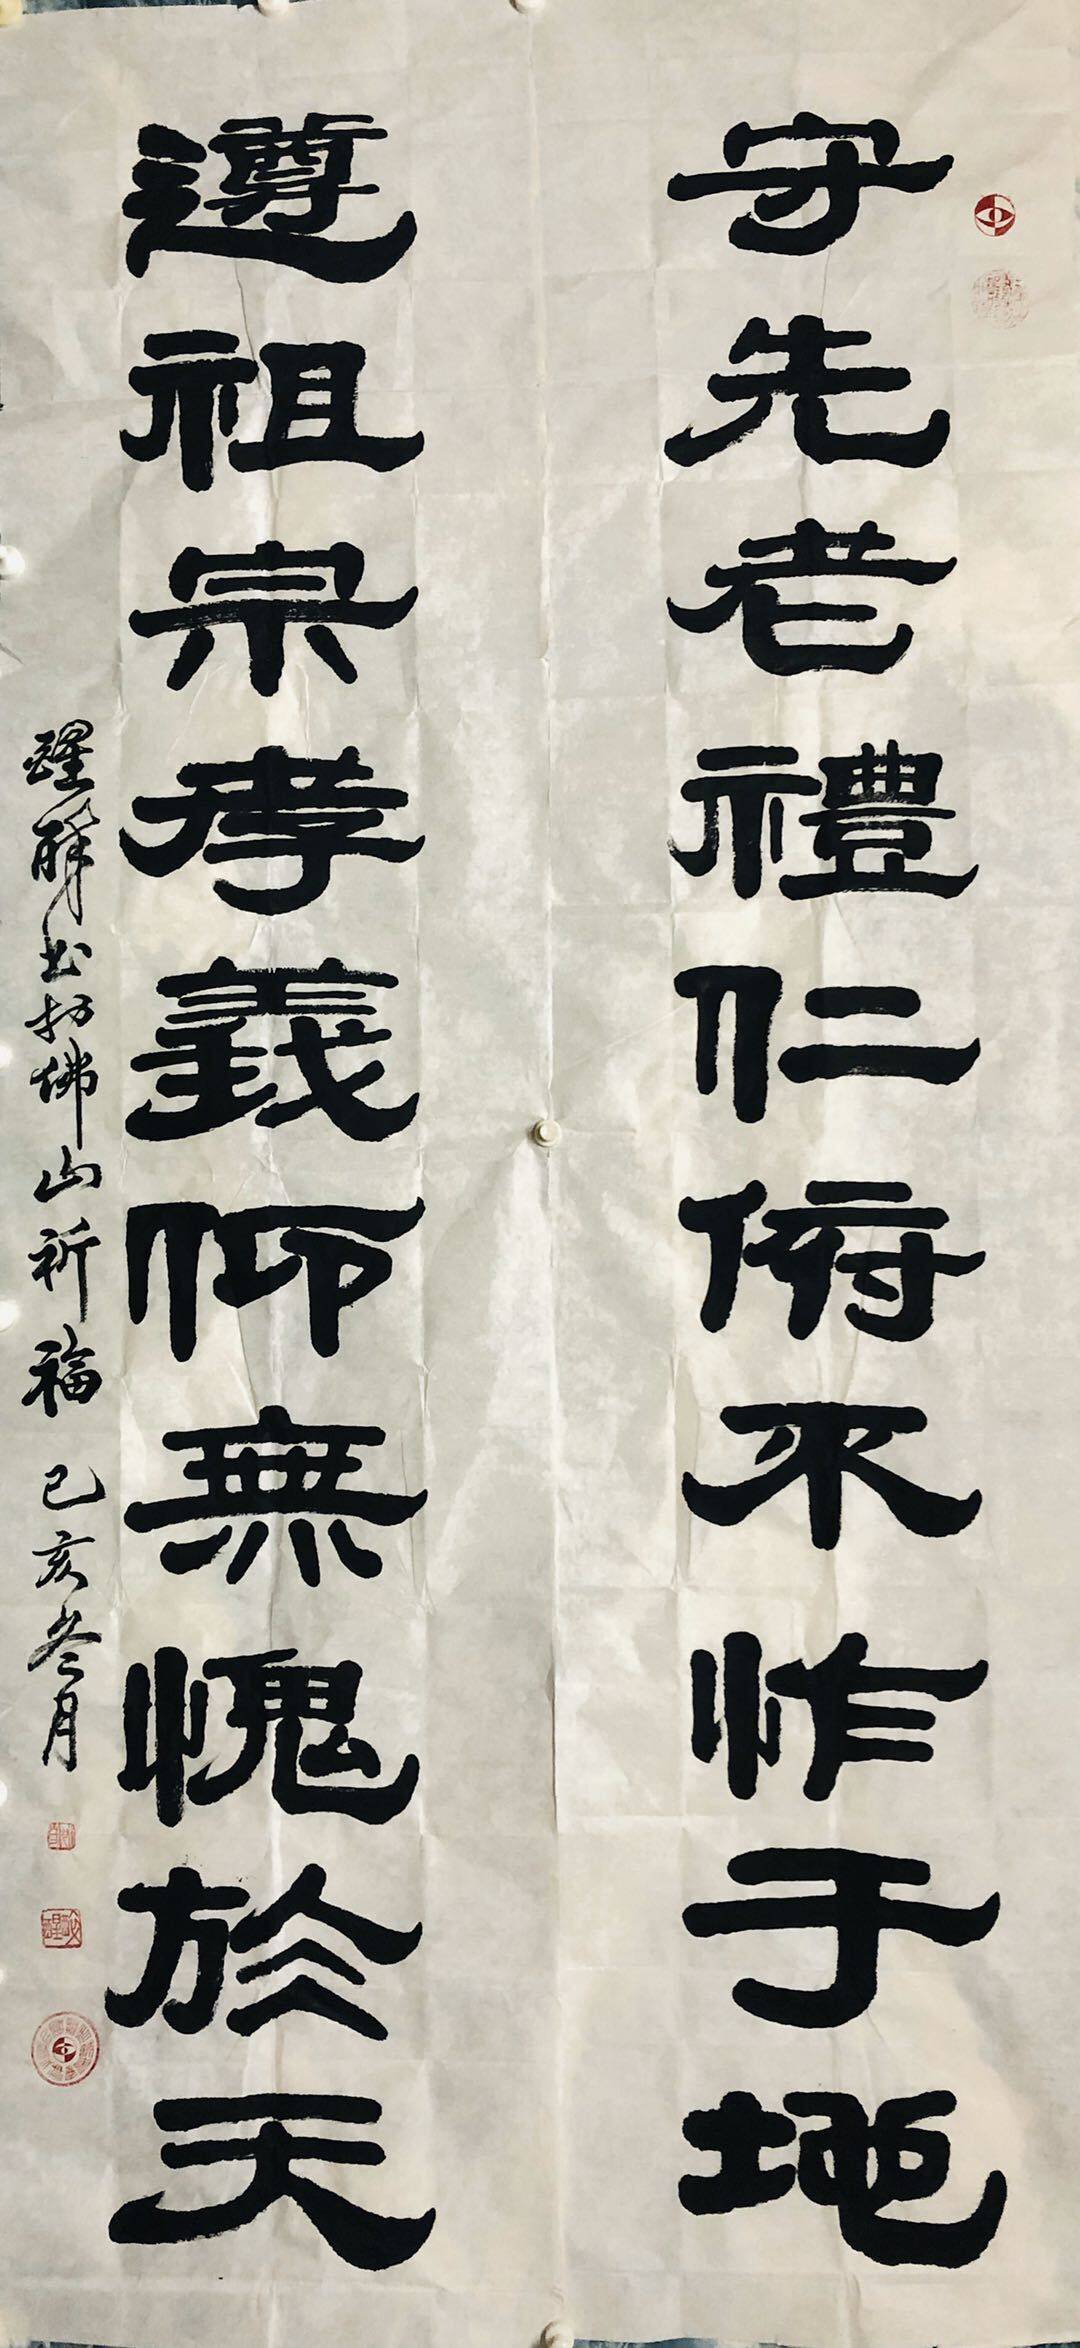 守先老禮仁俯不怍于地
遵祖宗孝義仰無愧於天
醒群書於佛山祈福 己亥冬月